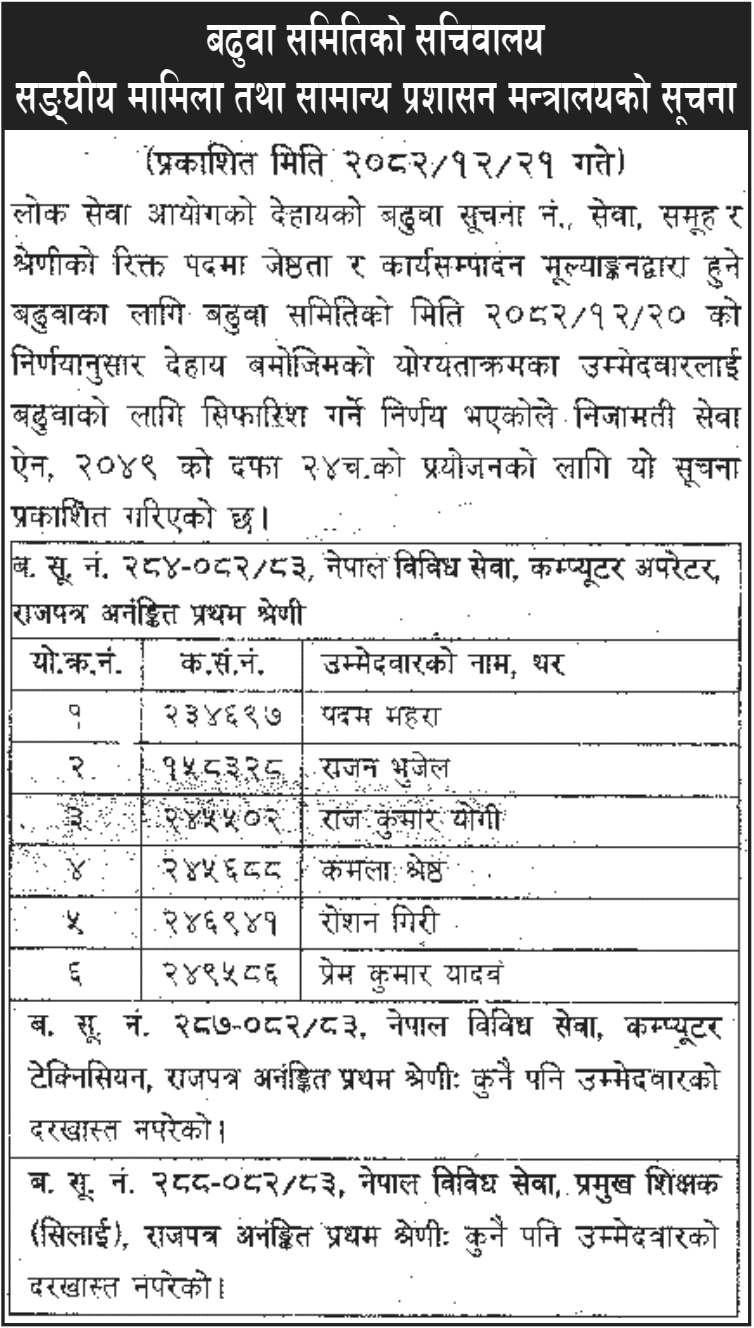 बढुवा समितिको सचिवालय
सङ्घीय मामिला तथा सामान्य प्रशासन मन्त्रालयको सूचना
(प्रकाशित मिति २०८२/१२/२१ गते)
लोक सेवा आयोगको देहायको बढुवा सूचना नं., सेवा, समूह र
श्रेणीको रिक्त पदमा जेष्ठता र कार्यसम्पादन मूल्याङ्कनद्वारा हुने
बढुवाका लागि बढुवा समितिको मिति २०८२/१२/२० को
निर्णयानुसार देहाय बमोजिमको योग्यताक्रमका उम्मेदवारलाई
बढुवाको लागि सिफारिश गर्ने निर्णय भएकोले निजामती सेवा
ऐन, २०४९ को दफा २४च.को प्रयोजनको लागि यो सूचना
प्रकाशित गरिएको छ।
ब. सू. नं. २८४-०८२/८३, नेपाल विविध सेवा, कम्प्यूटर अपरेटर,
राजपत्र अनंङ्कित प्रथम श्रेणी
यो.क्र.नं. क.सं.नं. उम्मेदवारको नाम, थर
१ २३४६९७ पदम महरा
२ १५८३२८ राजन भुजेल
३ २४५५०२ राज कुमार योगी
४ २४५६८८ कमला श्रेष्ठ
५ २४६९४१ रोशन गिरी
६ २४९५८६ प्रेम कुमार यादव
ब. सू. नं. २८७-०८२/८३, नेपाल विविध सेवा, कम्प्यूटर
टेक्निसियन, राजपत्र अनंङ्कित प्रथम श्रेणीः कुनै पनि उम्मेदवारको
दरखास्त नपरेको।
ब. सू. नं. २८८-०८२/८३, नेपाल विविध सेवा, प्रमुख शिक्षक
(सिलाई), राजपत्र अनंङ्कित प्रथम श्रेणीः कुनै पनि उम्मेदवारको
दरखास्त नपरेको।